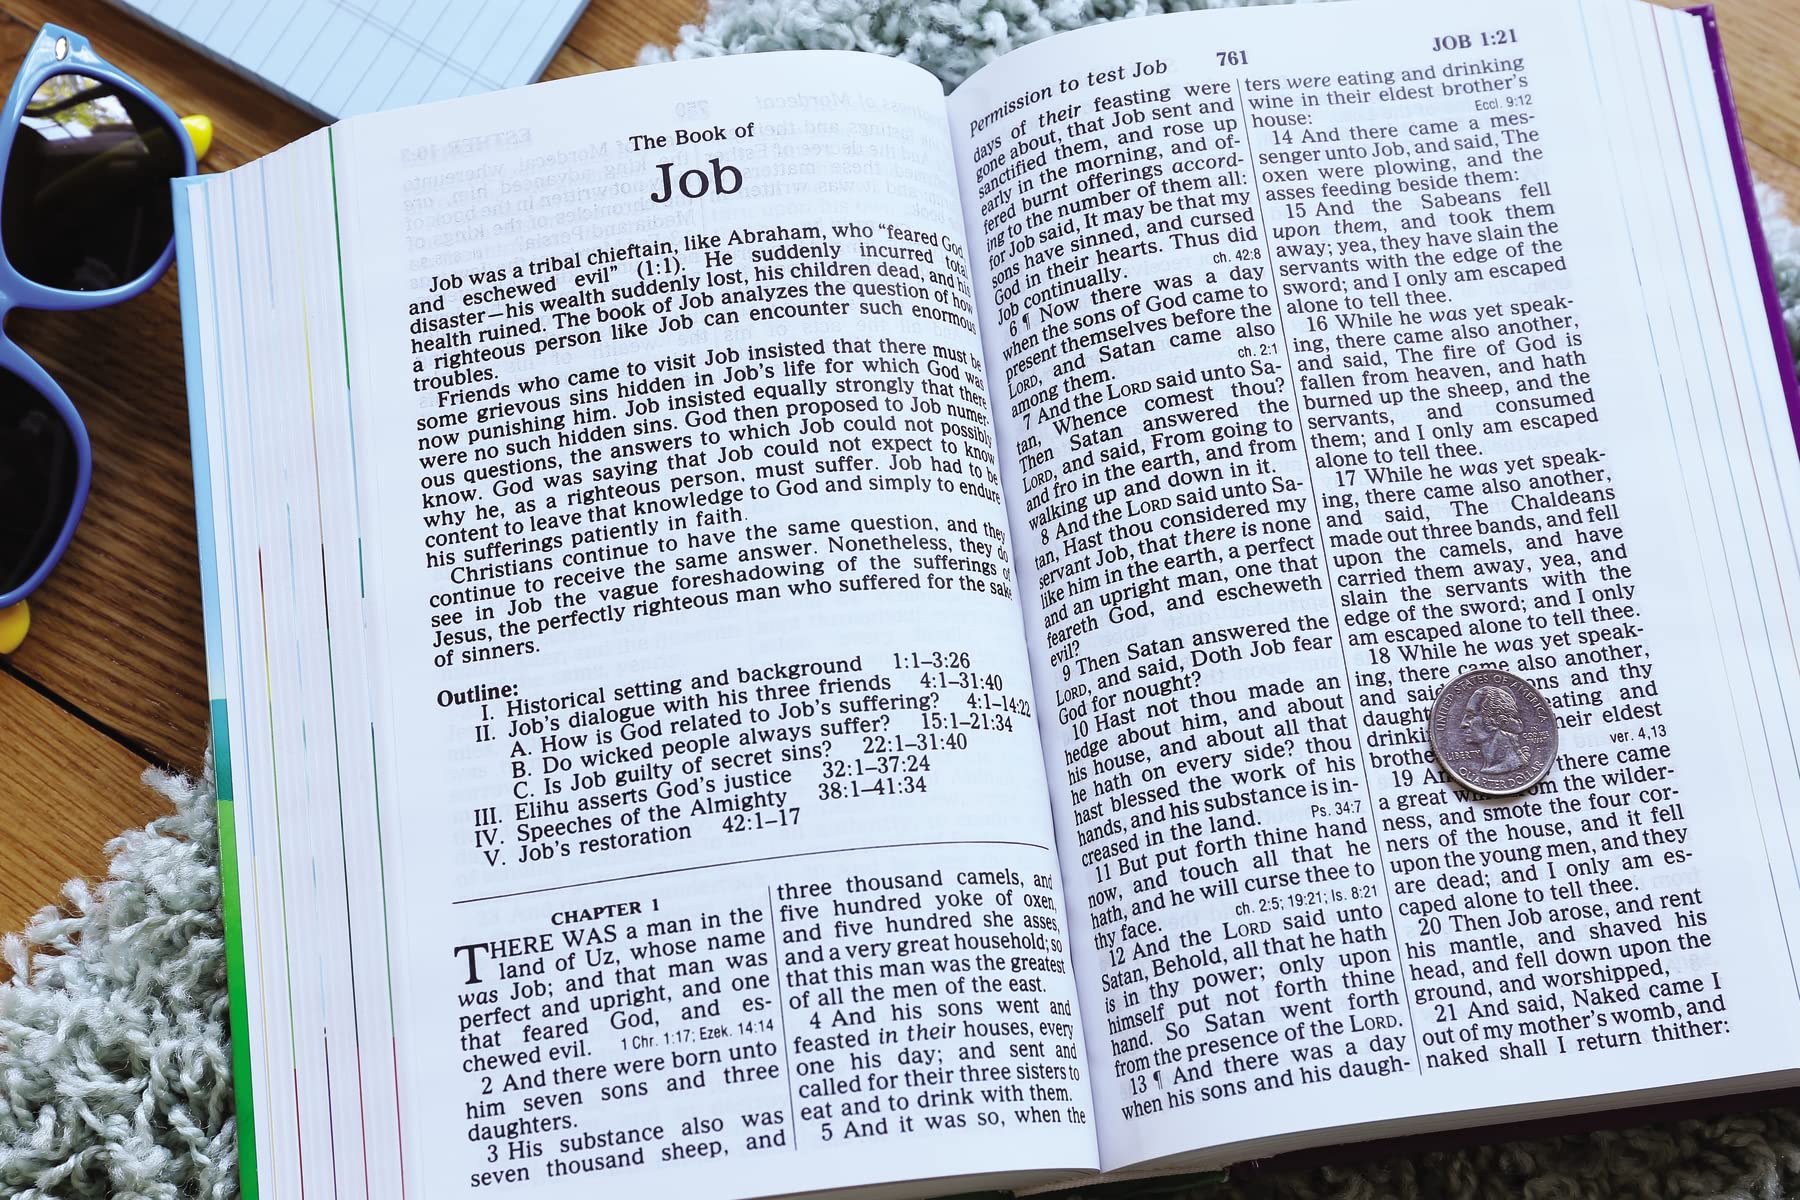 The Book of
Job
Job was a tribal chieftain, like Abraham, who “feared God
and eschewed evil” (1:1). He suddenly incurred total
disaster—his wealth suddenly lost, his children dead, and his
health ruined. The book of Job analyzes the question of how
a righteous person like Job can encounter such enormous
troubles.
Friends who came to visit Job insisted that there must be
some grievous sins hidden in Job’s life for which God was
now punishing him. Job insisted equally strongly that there
were no such hidden sins. God then proposed to Job numer-
ous questions, the answers to which Job could not possibly
know. God was saying that Job could not expect to know
why he, as a righteous person, must suffer. Job had to be
content to leave that knowledge to God and simply to endure
his sufferings patiently in faith.
Christians continue to have the same question, and they
continue to receive the same answer. Nonetheless, they do
see in Job the vague foreshadowing of the sufferings of
Jesus, the perfectly righteous man who suffered for the sake
of sinners.
Outline:
I. Historical setting and background 1:1–3:26
II. Job’s dialogue with his three friends 4:1–31:40
A. How is God related to Job’s suffering? 4:1–14:22
B. Do wicked people always suffer? 15:1–21:34
C. Is Job guilty of secret sins? 22:1–31:40
III. Elihu asserts God’s justice 32:1–37:24
IV. Speeches of the Almighty 38:1–41:34
V. Job’s restoration 42:1–17
CHAPTER 1
THERE WAS a man in the
land of Uz, whose name
was Job; and that man was
perfect and upright, and one
that feared God, and es-
chewed evil. 1 Chr. 1:17; Ezek. 14:14
2 And there were born unto
him seven sons and three
daughters.
3 His substance also was
seven thousand sheep, and
three thousand camels, and
five hundred yoke of oxen,
and five hundred she asses,
and a very great household; so
that this man was the greatest
of all the men of the east.
4 And his sons went and
feasted in their houses, every
one his day; and sent and
called for their three sisters to
eat and to drink with them.
5 And it was so, when the
Permission to test Job 761 JOB 1:21
days of their feasting were
gone about, that Job sent and
sanctified them, and rose up
early in the morning, and of-
fered burnt offerings accord-
ing to the number of them all:
for Job said, It may be that my
sons have sinned, and cursed
God in their hearts. Thus did
Job continually. ch. 42:8
6 ¶ Now there was a day
when the sons of God came to
present themselves before the
LORD, and Satan came also
among them. ch. 2:1
7 And the LORD said unto Sa-
tan, Whence comest thou?
Then Satan answered the
LORD, and said, From going to
and fro in the earth, and from
walking up and down in it.
8 And the LORD said unto Sa-
tan, Hast thou considered my
servant Job, that there is none
like him in the earth, a perfect
and an upright man, one that
feareth God, and escheweth
evil?
9 Then Satan answered the
LORD, and said, Doth Job fear
God for nought?
10 Hast not thou made an
hedge about him, and about
his house, and about all that
he hath on every side? thou
hast blessed the work of his
hands, and his substance is in-
creased in the land. Ps. 34:7
11 But put forth thine hand
now, and touch all that he
hath, and he will curse thee to
thy face. ch. 2:5; 19:21; Is. 8:21
12 And the LORD said unto
Satan, Behold, all that he hath
is in thy power; only upon
himself put not forth thine
hand. So Satan went forth
from the presence of the LORD.
13 ¶ And there was a day
when his sons and his daugh-
ters were eating and drinking
wine in their eldest brother’s
house: Eccl. 9:12
14 And there came a mes-
senger unto Job, and said, The
oxen were plowing, and the
asses feeding beside them:
15 And the Sabeans fell
upon them, and took them
away; yea, they have slain the
servants with the edge of the
sword; and I only am escaped
alone to tell thee.
16 While he was yet speak-
ing, there came also another,
and said, The fire of God is
fallen from heaven, and hath
burned up the sheep, and the
servants, and consumed
them; and I only am escaped
alone to tell thee.
17 While he was yet speak-
ing, there came also another,
and said, The Chaldeans
made out three bands, and fell
upon the camels, and have
carried them away, yea, and
slain the servants with the
edge of the sword; and I only
am escaped alone to tell thee.
18 While he was yet speak-
ing, there came also another,
and said and thy
eating and
eldest
ver. 4,13
19 there came
a great from the wilder-
ness, and smote the four cor-
ners of the house, and it fell
upon the young men, and they
are dead; and I only am es-
caped alone to tell thee.
20 Then Job arose, and rent
his mantle, and shaved his
head, and fell down upon the
ground, and worshipped,
21 And said, Naked came I
out of my mother’s womb, and
naked shall I return thither:
UNITED STATES OF AMERICA
LIBERTY
IN GOD WE TRUST
QUARTER DOLLAR